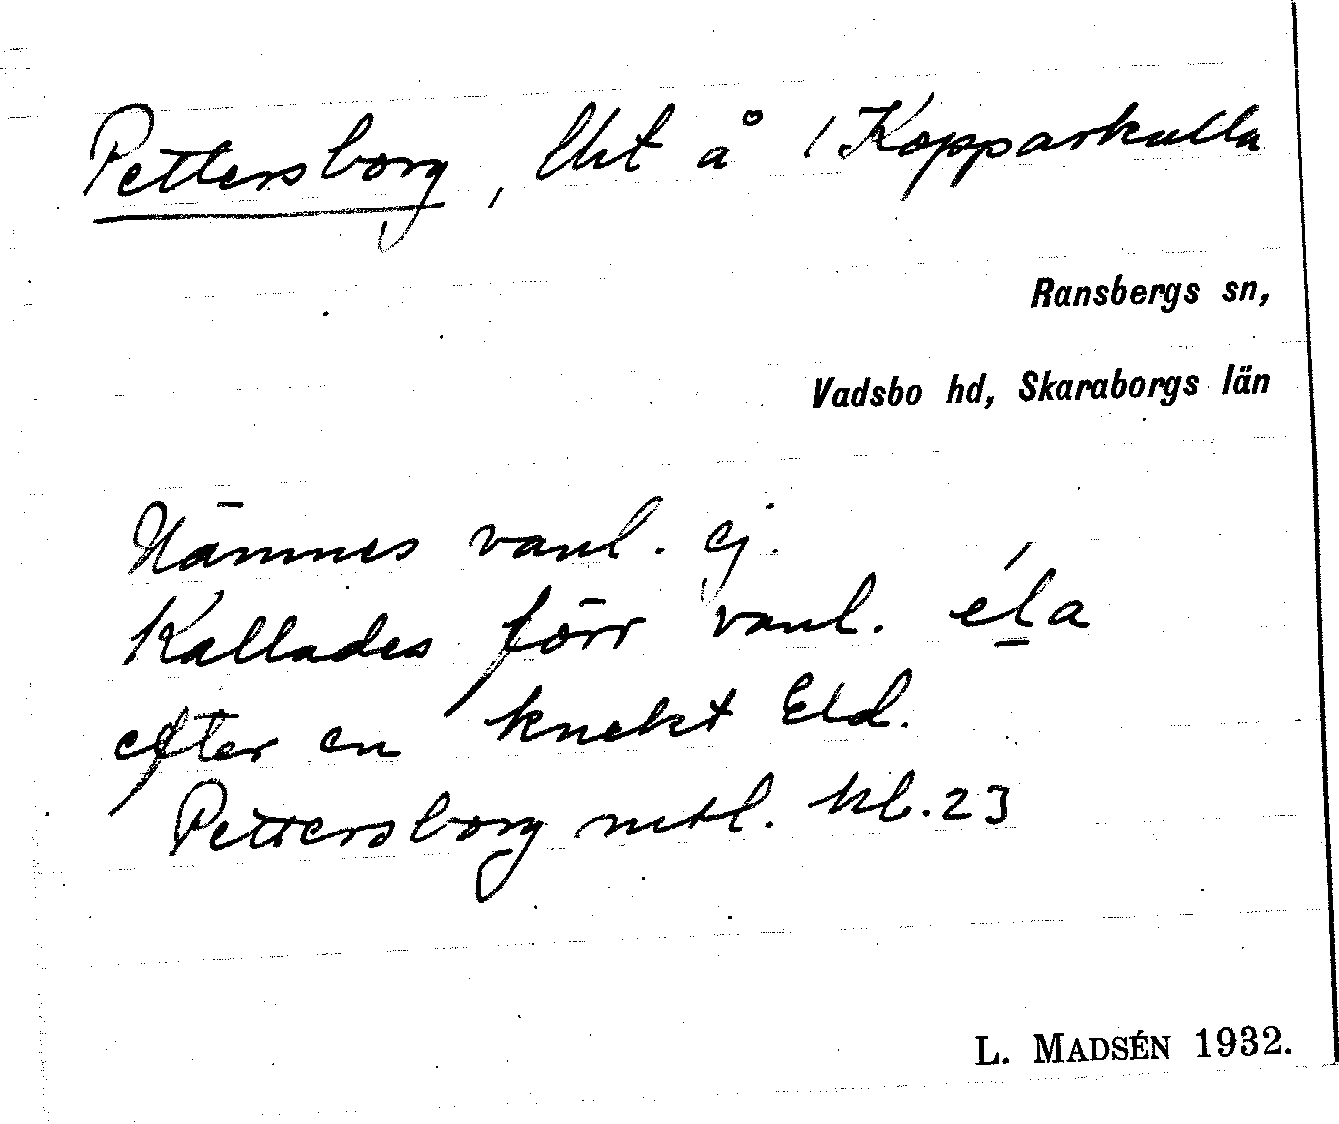 Pettersborg, lht å 1 Kopparkulla
Ransbergs sn,
Vadsbo hd, Skaraborgs län
Nämnes vanl. ej.
Kallades förr vanl.
efter en knekt Eld.
Pettersborg mtl. kl. 23
L. MADSÉN 1932.